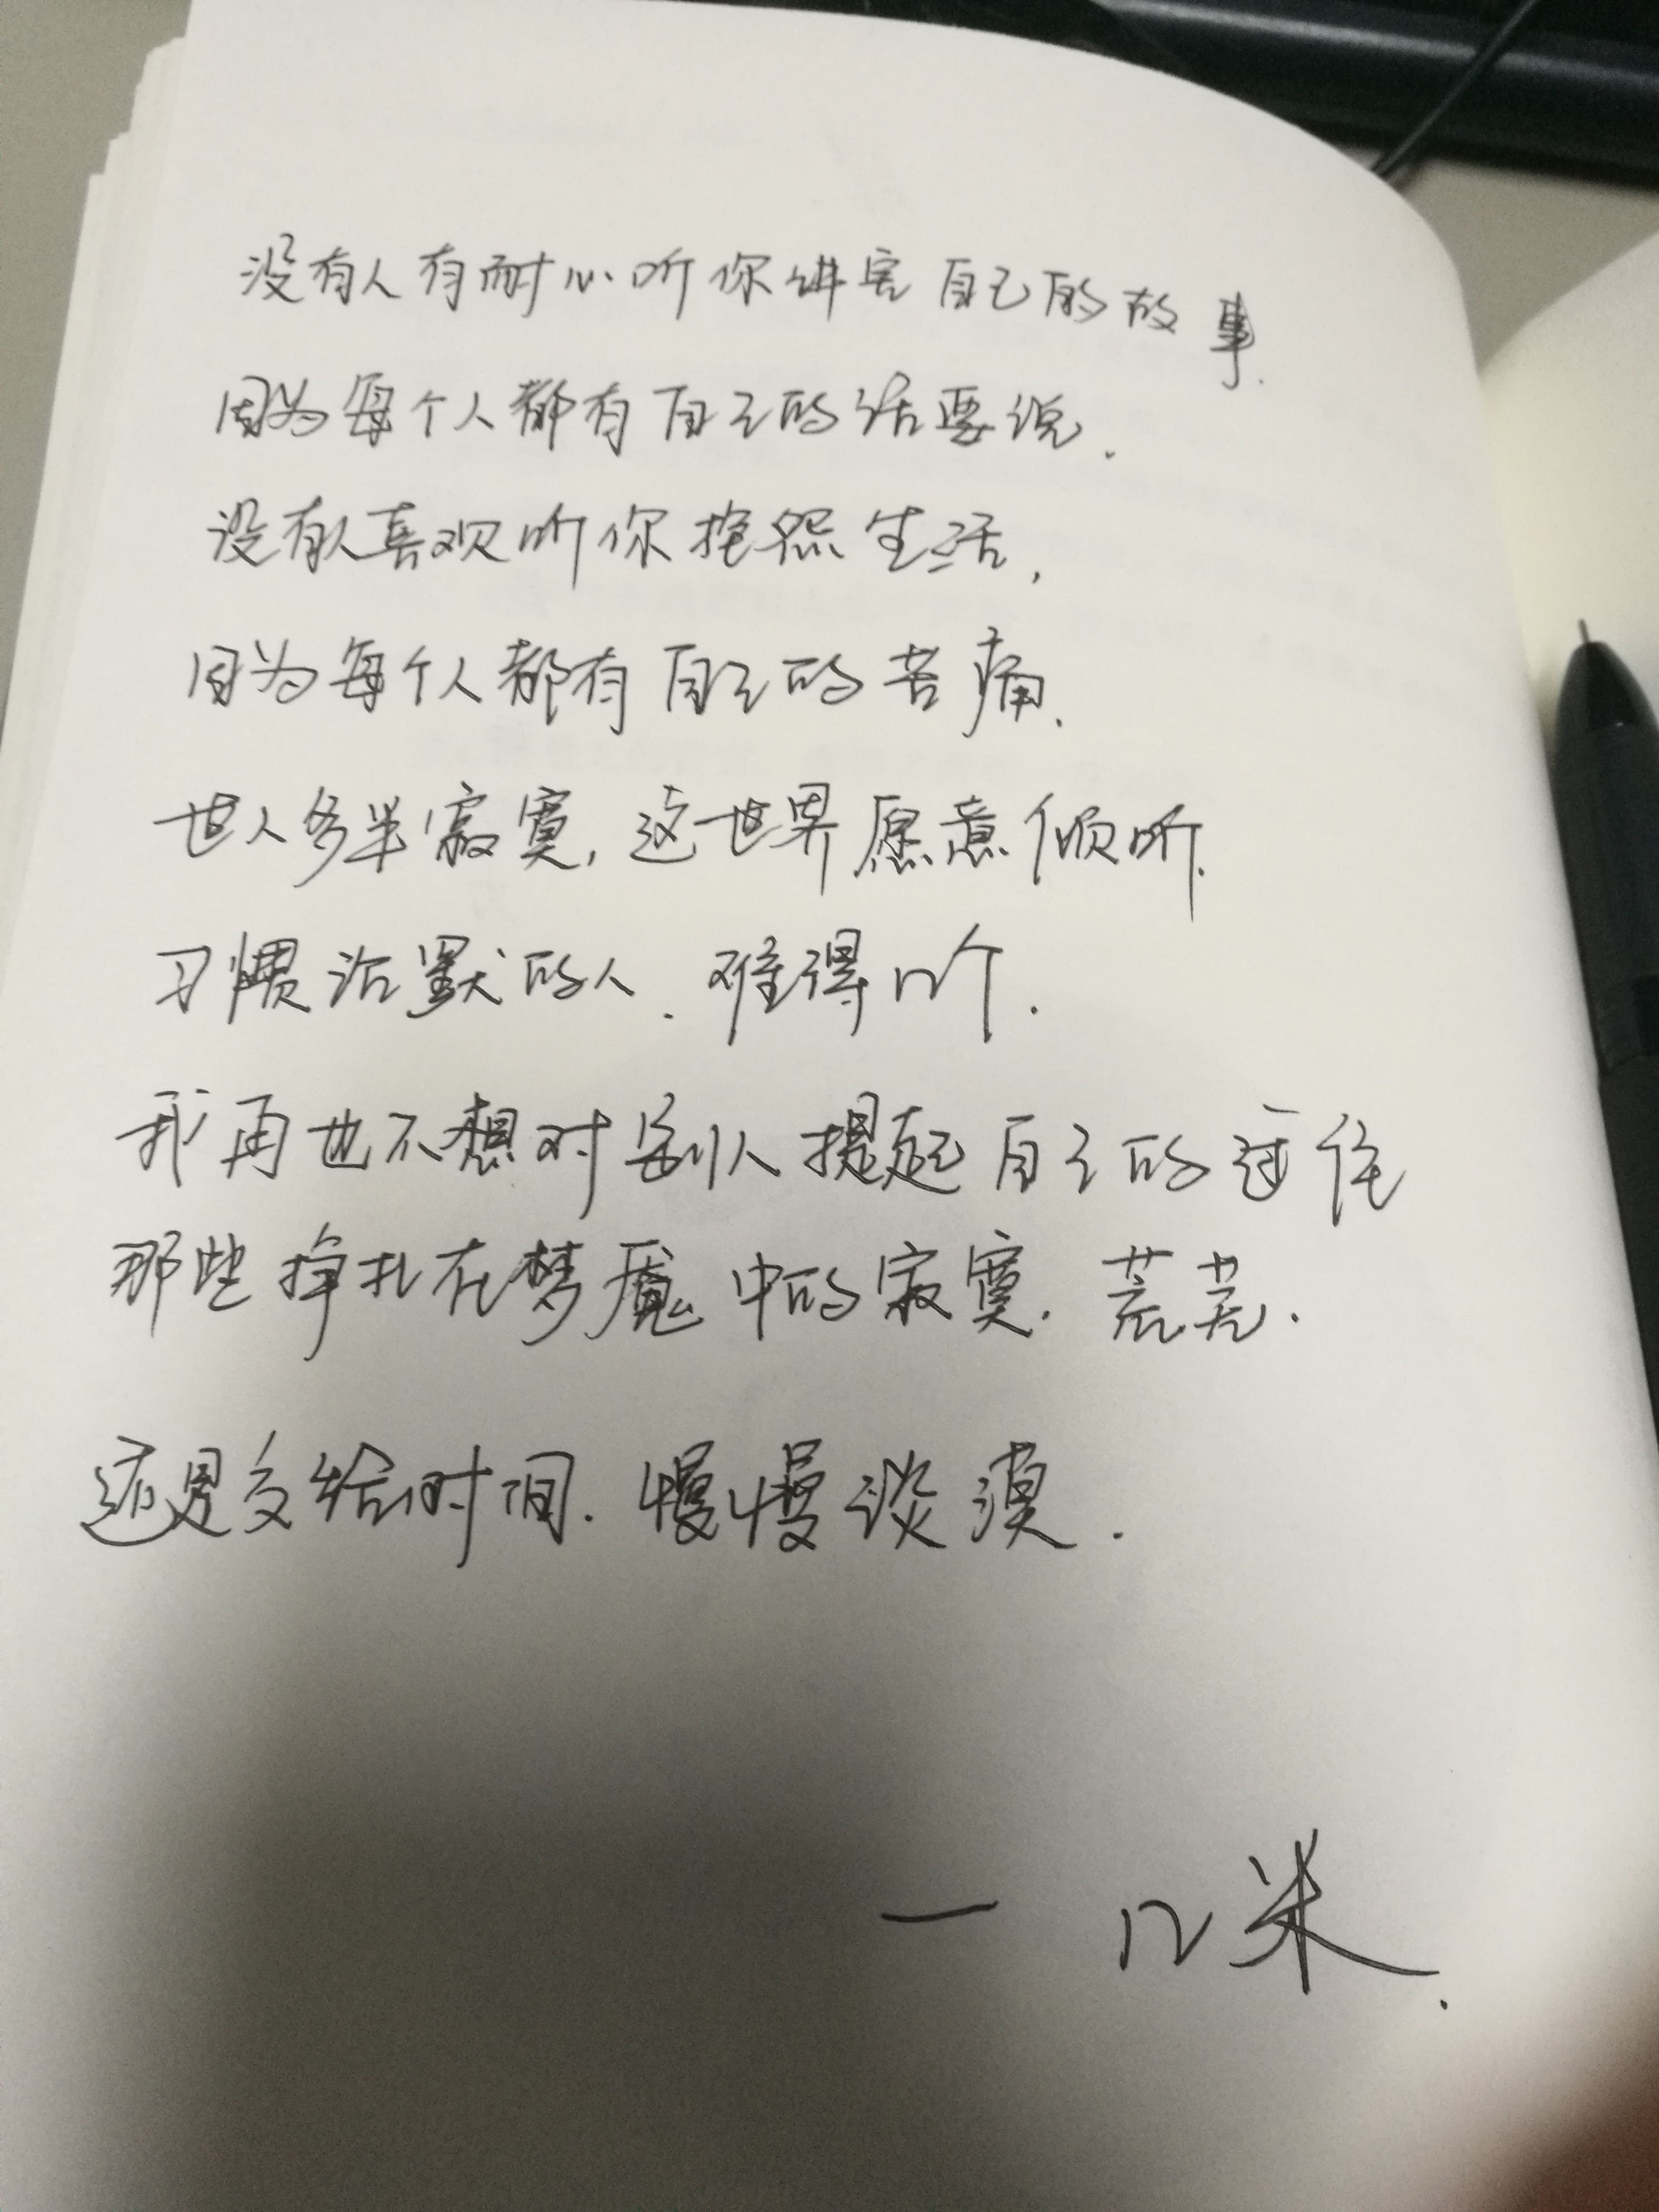 没有人有耐心听你讲完自己的故事.
因为每个人都有自己的话要说.
没有人喜欢听你抱怨生活,
因为每个人都有自己的苦痛.
世人多半寂寞,这世界愿意倾听.
习惯沉默的人.难得几个.
我再也不想对别人提起自己的过往
那些挣扎在梦魇中的寂寞.荒芜.
还是交给时间.慢慢淡漠.
— 几米.